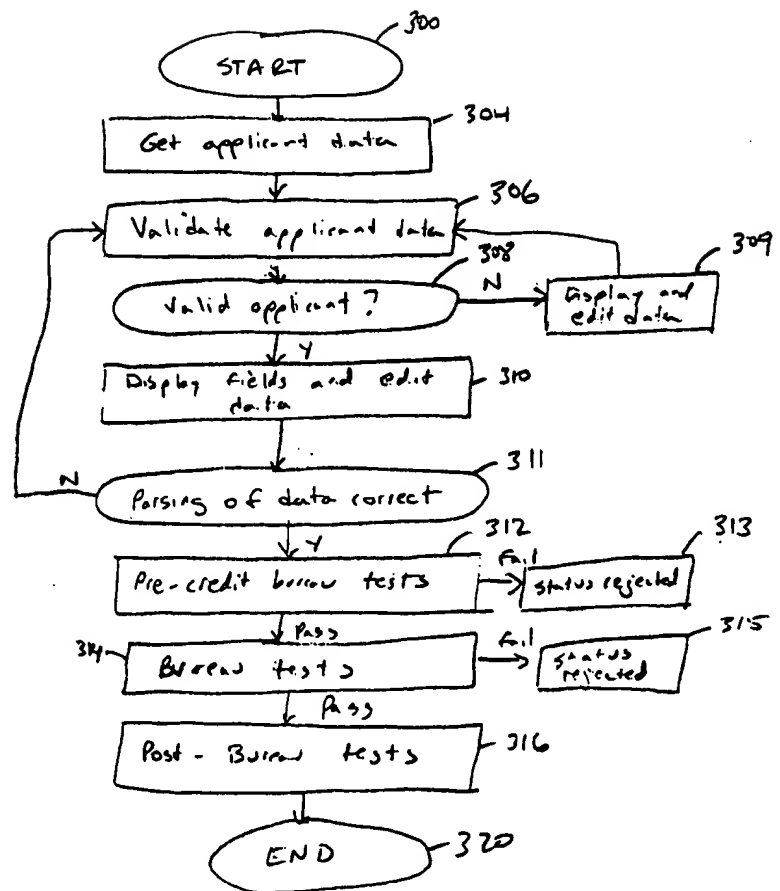 300
START
304
Get applicant data
306
Validate applicant data
308
Valid applicant?
N
309
Display and
edit data
Y
Display fields and edit
data
310
311
N
Parsing of data correct
Y
312
Pre-credit bureau tests
Fail
313
status rejected
Pass
314
Bureau tests
Fail
315
status
rejected
Pass
Post-Bureau tests
316
END
320